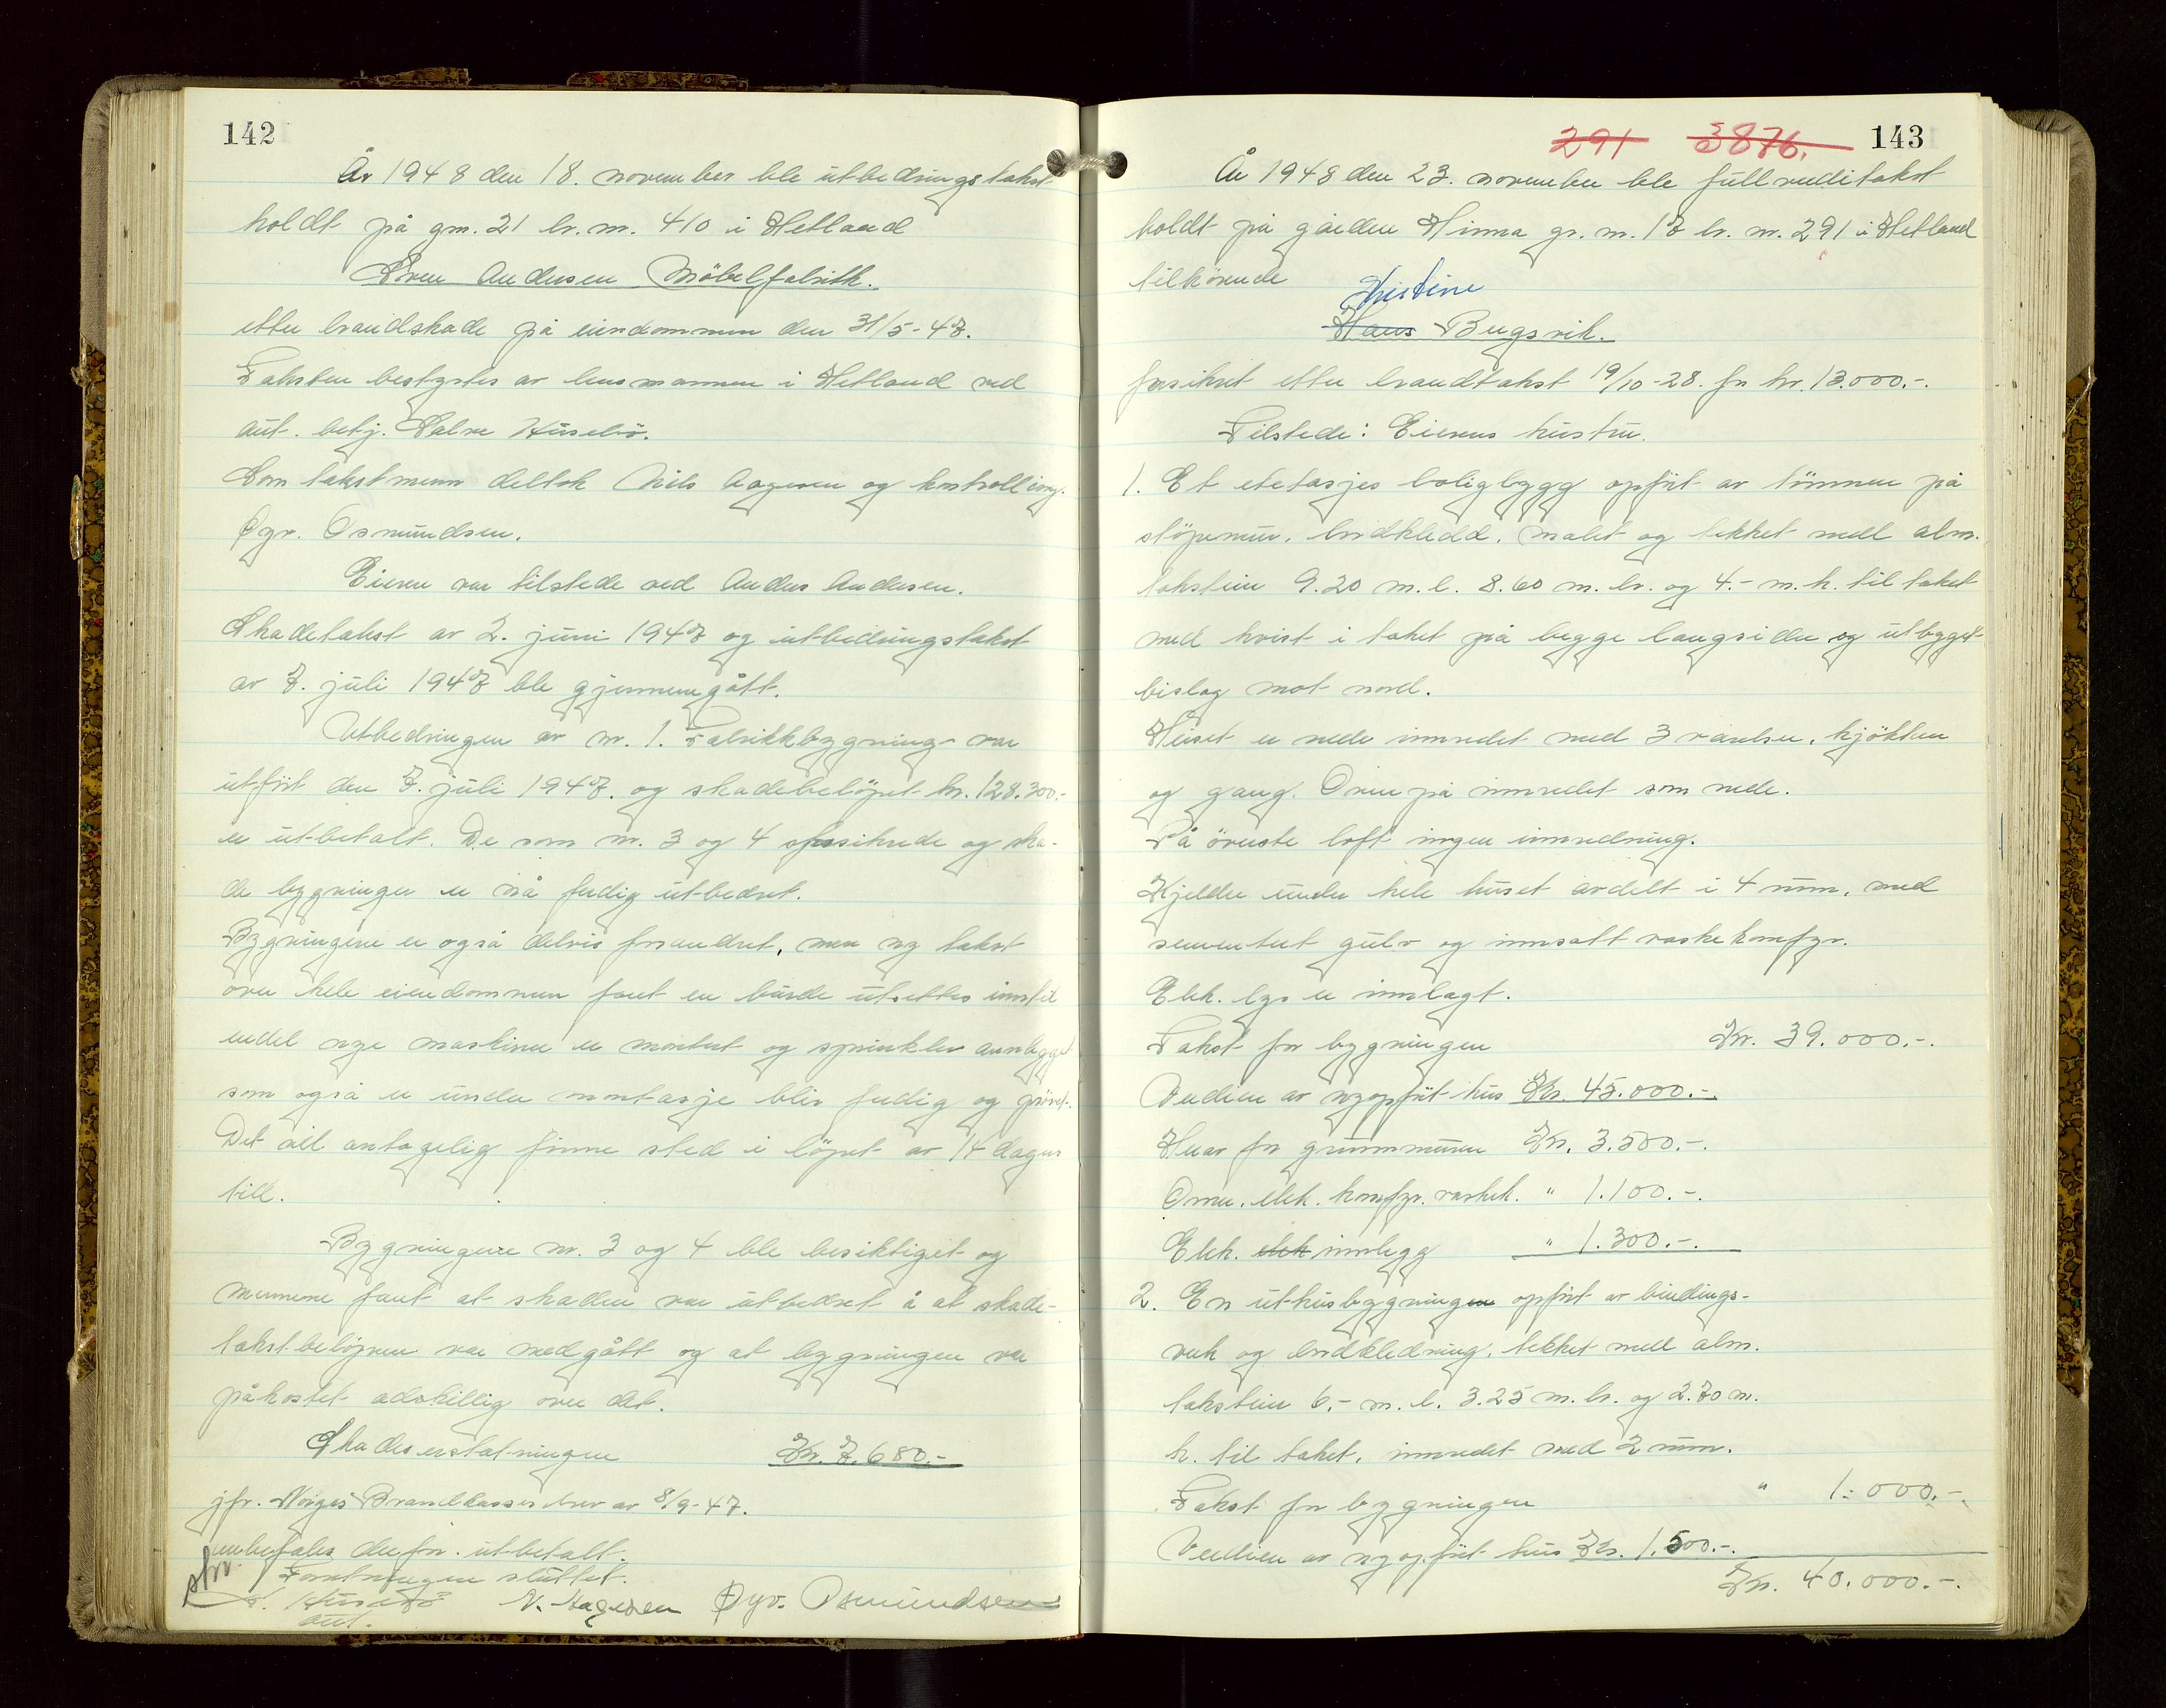 142
År 1948 den 18. november ble utbedringstakst
holdt på gnr. 21 br. nr. 410 i Hetland
Sven Andersen Möbelfabrikk.
etter brandskade på eiendommen den 31/5-47.
Taksten bestyrtes av lensmannen i Hetland ved
aut. betj. Salve Husebö.
Som takstmenn deltok Nils Aagesen og kontrolling.
Øyv. Osmundsen.
Eieren var tilstede ved Anders Andersen.
Skadetakst av 2. juni 1947 og utbedringstakst
av 7. juli 1947 ble gjennemgått.
Utbedringen av nr. 1. Fabrikkbygning var
utfört den 7. juli 1947. og skadebelöpet kr. 128.300.-
er utbetalt. De som nr. 3 og 4 forsikrede og ska-
de bygninger er nå ferdig utbedret.
Bygningene er også delvis forandret, men ny takst
over hele eiendommen fant en burde utsettes inntil
endel nye maskiner er montert og sprinkler annlegget
som også er under montasje blir ferdig og prövet.
Det vil antagelig finne sted i löpet av 14 dager
till.
Bygningene nr. 3 og 4 ble besiktiget og
mennene fant at skaden var utbedret å at skade-
takstbelöpene var medgått og at bygningen var
påkostet adskillig over det.
Skadeserstatningen Kr. 7.680.-
jfr. Norges Brandkasses brev av 8/9-47.
anbefales derfor utbetalt.
Forretningen sluttet.
S. Husebö N. Aagesen Øyv. Osmundsen
aut.
291 3876. 143
År 1948 den 23. november ble fullverditakst
holdt på gården Hinna gr. nr. 17 br. nr. 291 i Hetland
tilhörende
Kristine
Hans Bugsvik.
forsikret etter brandtakst 19/10-28. for kr. 13.000.-.
Tilstede: Eierens hustru.
1. Et etetasjes boligbygg opfört av tömmer på
stöpemur, bordkledd, malet og tekket med alm.
takstein 9.20 m. l. 8.60 m. br. og 4.- m. h. til taket
med kvist i taket på begge langsider og utbygget
bislag mot nord.
Huset er nede innredet med 3 værelser, kjökken
og gang. Oven på innredet som nede.
På överste loft ingen innredning.
Kjelder under hele huset avdelt i 4 rum, med
sementert gulv og innsatt vaskekomfyr.
Elek. lys er innlagt.
Takst for bygningen Kr. 39.000.-.
Verdien av nyopfört hus Kr. 45.000.-.
Herav for grunnmuren Kr. 3.500.-.
Ovner, elek. komfyr. vaskek. " 1.100.-.
Elek. elek innlegg " 1.300.-.
2. En uthusbygningen opfört av bindings-
verk og bordkledning, tekket med alm.
takstein 6.- m. l. 3.25 m. br. og 2.70 m.
h. til taket, innredet med 2 rum.
Takst for bygningen " 1.000.-.
Verdien av nyopfört hus Kr. 1.500.-.
Kr. 40.000.-.